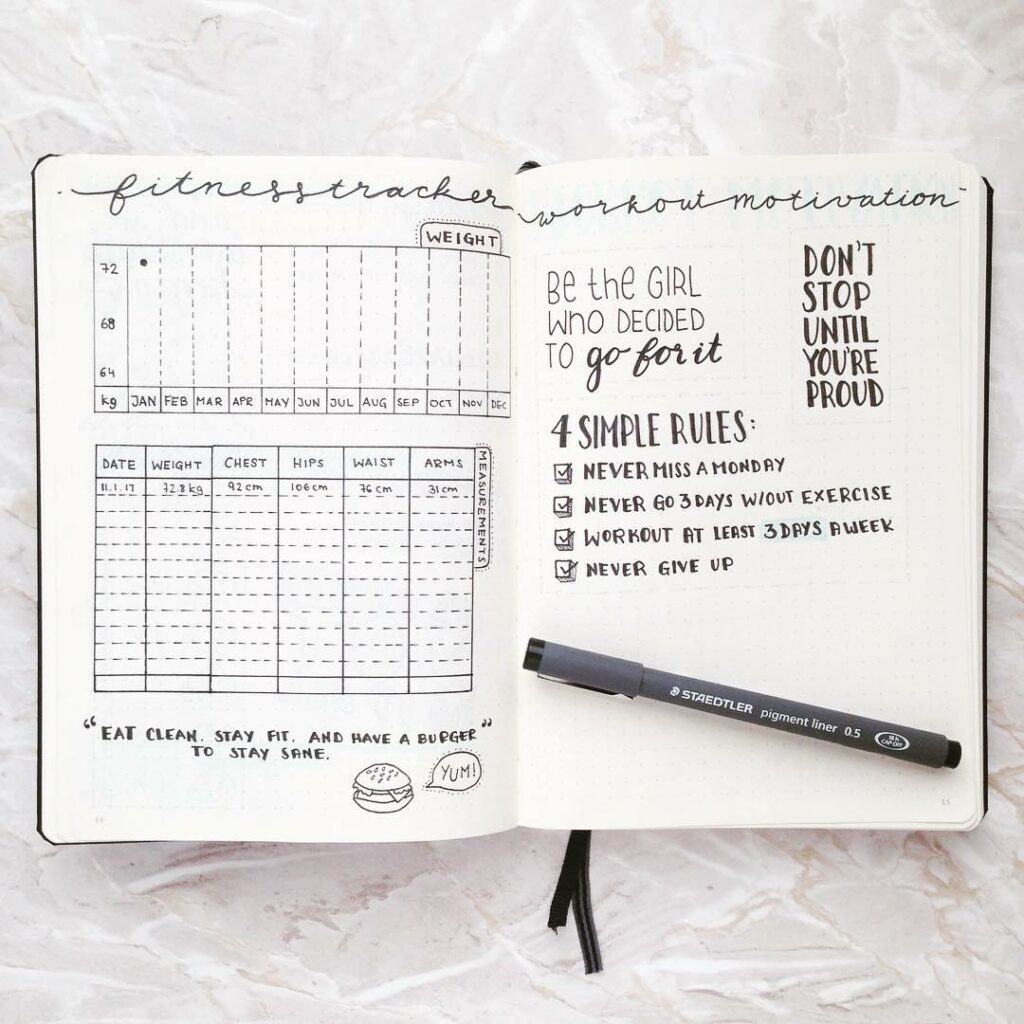 fitness tracker
WEIGHT
72
68
64
kg JAN FEB MAR APR MAY JUN JUL AUG SEP OCT NOV DEC
MEASUREMENTS
DATE WEIGHT CHEST HIPS WAIST ARMS
11.1.17 72.8kg 92cm 106cm 76cm 31cm
“EAT CLEAN. STAY FIT. AND HAVE A BURGER
TO STAY SANE.”
YUM!
14
workout motivation
Be the GIRL
WHO DECIDED
TO go for it
DON'T
STOP
UNTIL
YOU'RE
PROUD
4 SIMPLE RULES:
NEVER MISS A MONDAY
NEVER GO 3 DAYS W/OUT EXERCISE
WORKOUT AT LEAST 3 DAYS A WEEK
NEVER GIVE UP
STAEDTLER pigment liner 0.5
CAP OFF
15